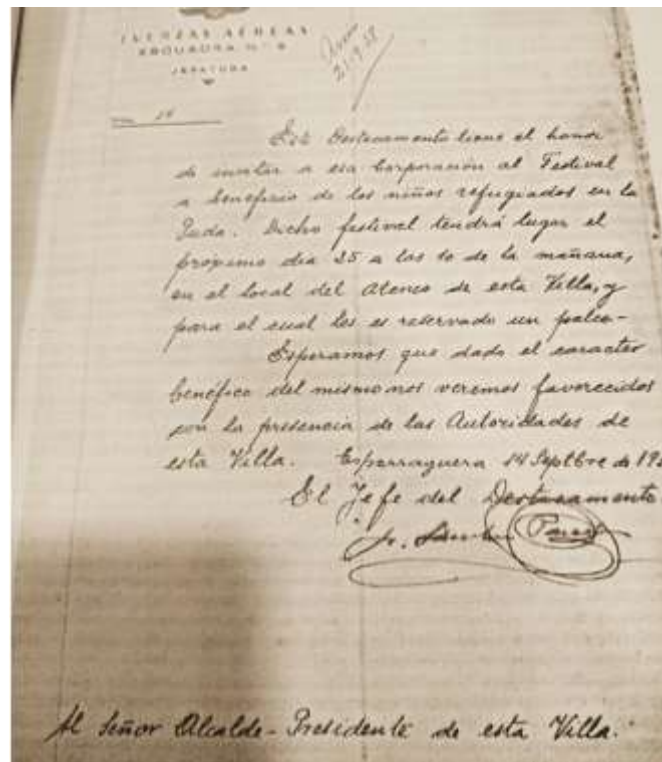 FUERZAS AEREAS
ESQUADRA N.º 8
JEFATURA
21-9-38
Este Destacamento tiene el honor
de invitar a esa Corporación al Festival
a beneficio de los niños refugiados en la
Puda. Dicho festival tendrá lugar el
próximo dia 25 a las 10 de la mañana,
en el local del Ateneo de esta Villa, y
para el cual les es reservado un palco-
Esperamos que dado el caracter
benéfico del mismo nos veremos favorecidos
con la presencia de las Autoridades de
esta Villa. Esparraguera 14 Septbre de 19
El Jefe del Destacamento
Al Señor Alcalde-Presidente de esta Villa.